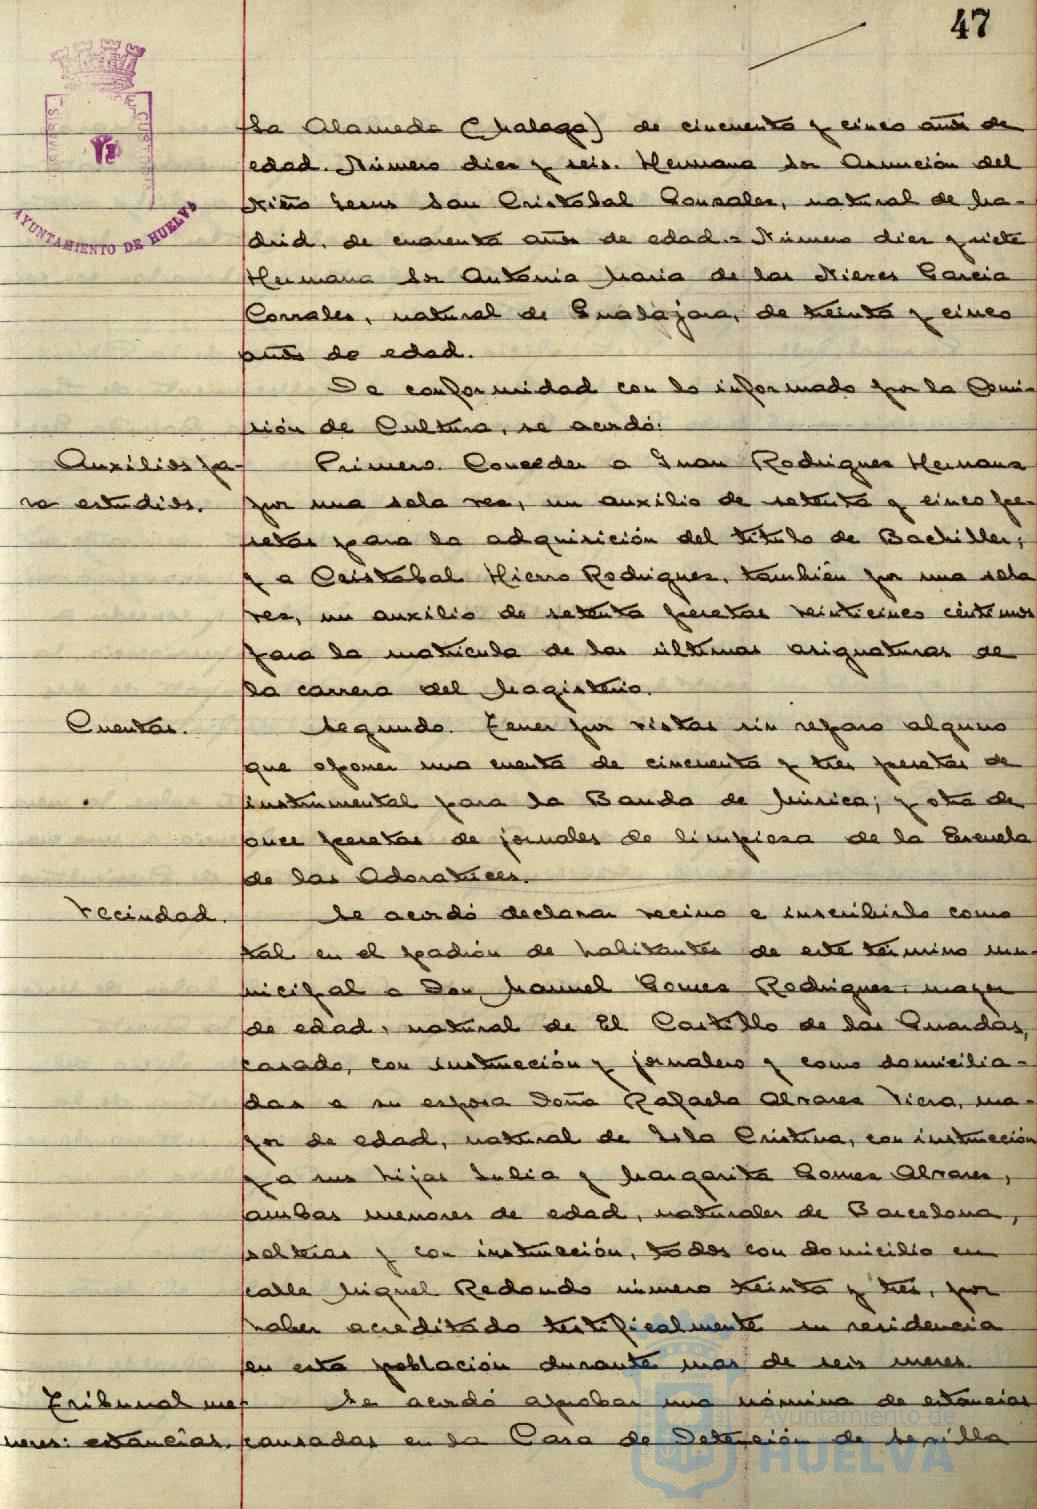 47
AYUNTAMIENTO DE HUELVA
la Alameda (Malaga) de cincuenta y cinco años de
edad. Número diez y seis. Hermana Sor Asunción del
Niño Jesus San Cristóbal Gonzalez, natural de Ma-
drid, de cuarenta años de edad.= Número diez y siete
Hermana Sor Antonia Maria de las Nieves Garcia
Corrales, natural de Gualajara, de treinta y cinco
años de edad.
De conformidad con lo informado por la Comi-
sión de Cultura, se acordó:
Auxilios pa-
ra estudios.
Primero. Conceder a Juan Rodriguez Hermana
por una sola vez, un auxilio de setenta y cinco pe-
setas para la adquisición del título de Bachiller;
y a Cristobal Hierro Rodriguez, también por una sola
vez, un auxilio de setenta pesetas veinticinco céntimos
para la matricula de las últimas asignaturas de
la carrera del Magisterio.
Cuentas.
Segundo. Tener por vistas sin reparo alguno
que oponer una cuenta de cincuenta y tres pesetas de
instrumental para la Banda de Música; y otra de
once pesetas de jornales de limpieza de la Escuela
de las Adoratrices.
Vecindad.
Se acordó declarar vecino e inscribirlo como
tal en el padrón de habitantes de este término mu-
nicipal a Don Manuel Gomez Rodriguez, mayor
de edad, natural de El Castillo de las Guardas,
casado, con instrucción y jornalero y como domicilia-
das a su esposa Doña Rafaela Alvarez Viera, ma-
yor de edad, natural de Isla Cristina, con instrucción
y a sus hijas Julia y Margarita Gomez Alvarez,
ambas menores de edad, naturales de Barcelona,
solteras y con instrucción, todos con domicilio en
calle Miguel Redondo número treinta y tres, por
haber acreditado testificalmente su residencia
en esta población durante mas de seis meses.
Tribunal me-
nores: estancias.
Se acordó aprobar una nómina de estancias
causadas en la Casa de Detención de Sevilla
Ayuntamiento de
HUELVA